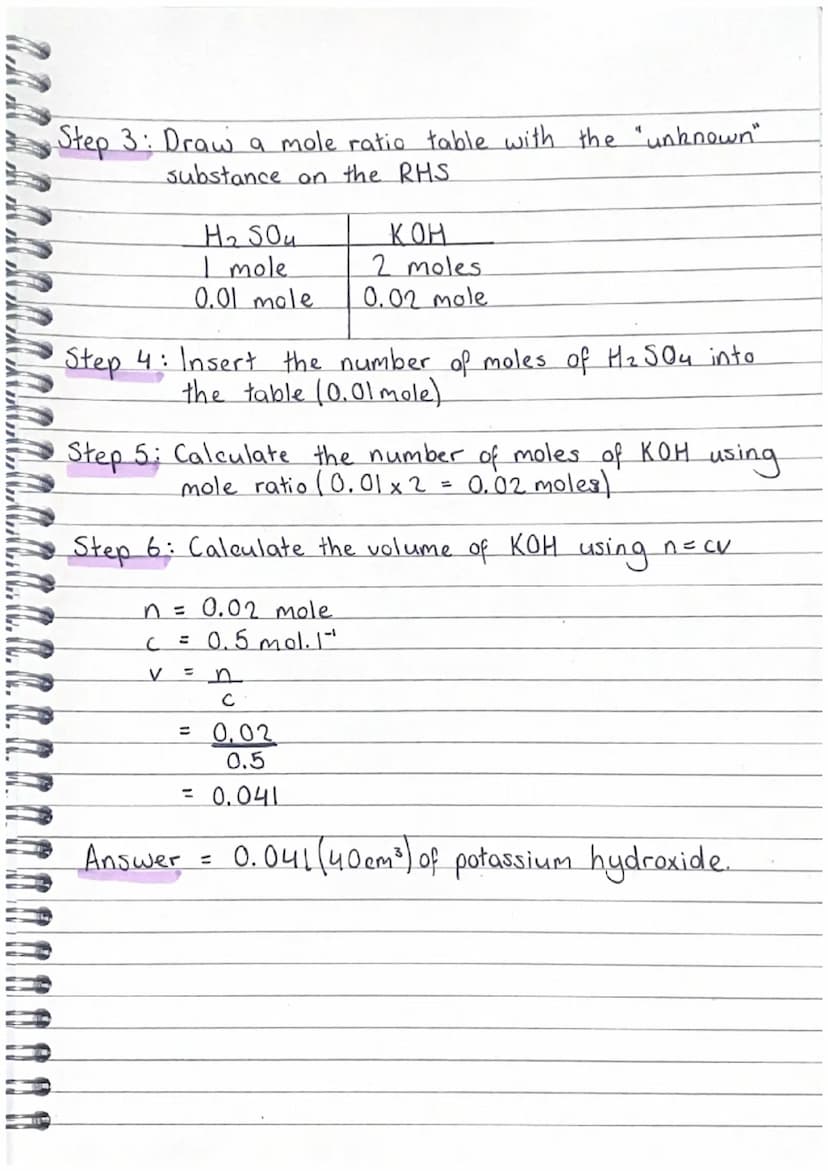 Step 3: Draw a mole ratio table with the "unknown"
substance on the RHS
H₂SO₄ KOH
1 mole 2 moles
0.01 mole 0.02 mole
Step 4: Insert the number of moles of H₂SO₄ into
the table (0.01 mole)
Step 5: Calculate the number of moles of KOH using
mole ratio (0.01 x 2 = 0.02 moles)
Step 6: Calculate the volume of KOH using n = cv
n = 0.02 mole
c = 0.5 mol.l⁻¹
v = n
c
= 0.02
0.5
= 0.04l
Answer = 0.04l (40cm³) of potassium hydroxide.